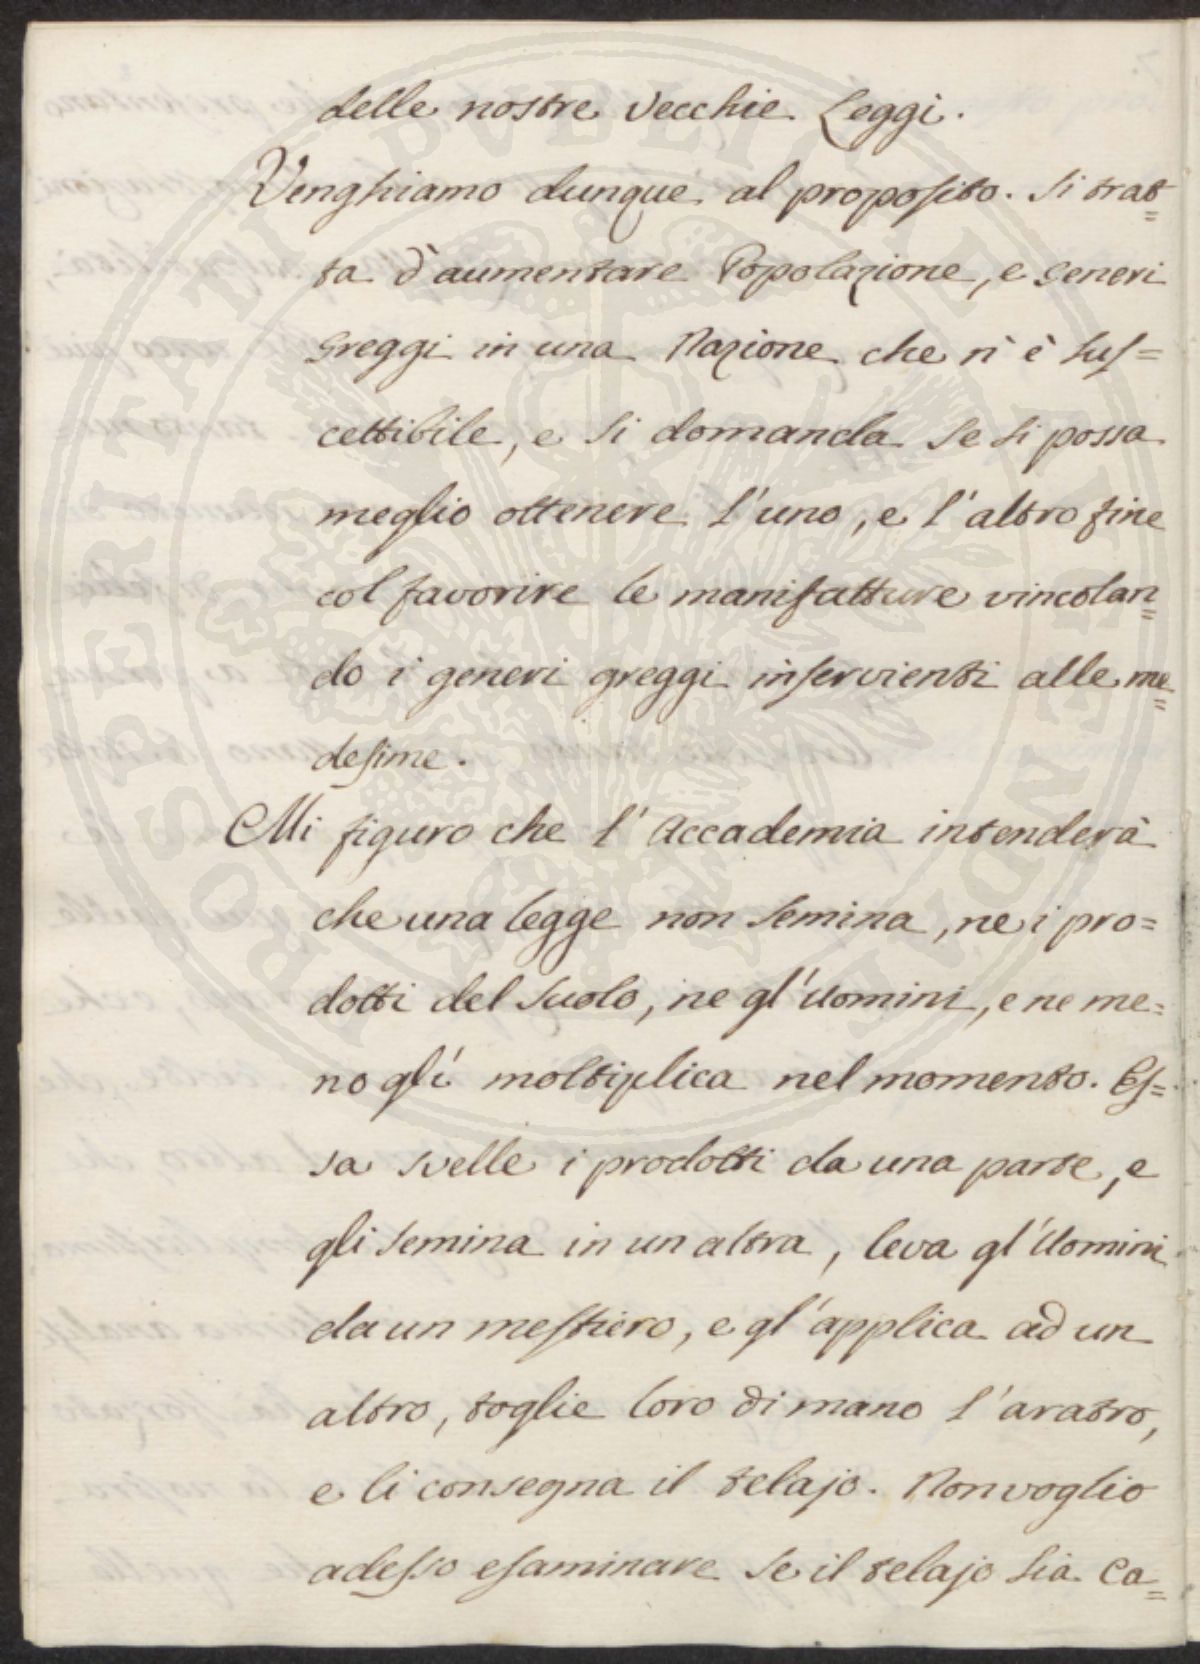 delle nostre Vecchie Leggi.
Venghiamo dunque al proposito. Si trat=
ta d'aumentare Popolazione, e Generi
Greggi in una Nazione che n'è sus=
cettibile, e si domanda se si possa
meglio ottenere l'uno, e l'altro fine
col favorire le manifatture vincolan=
do i generi greggi inservienti alle me=
desime.
Mi figuro che l'Accademia intenderà
che una legge non semina, ne i pro=
dotti del Suolo, ne gl'Uomini, e ne me=
no gli moltiplica nel momento. Es=
sa svelle i prodotti da una parte, e
gli semina in un altra, leva gl'Uomini
da un mestiero, e gl'applica ad un
altro, toglie loro di mano l'aratro,
e li consegna il telajo. Non voglio
adesso esaminare se il telajo sia ca=
PROSPERITATI PVBLICAE AVGENDAE